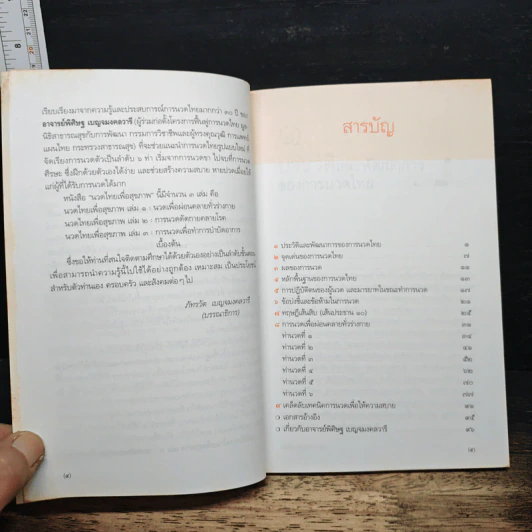 เรียบเรียงมาจากความรู้และประสบการณ์การนวดไทยมากกว่า ๓๐ ปี ของ
อาจารย์พิศิษฐ เบญจมงคลวารี (ผู้ร่วมก่อตั้งโครงการฟื้นฟูการนวดไทย มูล-
นิธิสาธารณสุขกับการพัฒนา กรรมการวิชาชีพและผู้ทรงคุณวุฒิ การแพทย์
แผนไทย กระทรวงสาธารณสุข) ที่จะช่วยแนะนำการนวดไทยรูปแบบใหม่
จัดเรียงการนวดตัวเป็นลำดับ ๖ ท่า เริ่มจากการนวดขา ไปจบที่การนวด
ศีรษะ ซึ่งฝึกด้วยตัวเองได้ง่าย และช่วยสร้างความสบาย หายปวดเมื่อยให้
แก่ผู้ที่ได้รับการนวดได้มาก
หนังสือ "นวดไทยเพื่อสุขภาพ" นี้มีจำนวน ๓ เล่ม คือ
นวดไทยเพื่อสุขภาพ เล่ม ๑ : นวดเพื่อผ่อนคลายทั่วร่างกาย
นวดไทยเพื่อสุขภาพ เล่ม ๒ : การนวดดัดกายคลายโรค
นวดไทยเพื่อสุขภาพ เล่ม ๓ : การนวดเพื่อทำการบำบัดอาการ
เบื้องต้น
ซึ่งขอให้ท่านที่สนใจติดตามศึกษาได้ด้วยตัวเองอย่างเป็นลำดับขั้นตอน
เพื่อสามารถนำความรู้นี้ไปใช้ได้อย่างถูกต้อง เหมาะสม เป็นประโยชน์
สำหรับตัวท่านเอง ครอบครัว และสังคมต่อๆ ไป
ภัทรวัต เบญจมงคลวารี
(บรรณาธิการ)
(๔)
สารบัญ
๑ ประวัติและพัฒนาการของการนวดไทย ๑
๒ จุดเด่นของการนวดไทย ๗
๓ ผลของการนวด
๔ หลักพื้นฐานของการนวดไทย ๑๑
๕ การปฏิบัติตนของผู้นวด และมารยาทในขณะทำการนวด ๑๗
๖ ข้อบ่งชี้และข้อห้ามในการนวด ๒๑
๗ ทฤษฎีเส้นสิบ (เส้นประธาน ๑๐) ๒๕
๘ การนวดเพื่อผ่อนคลายทั่วร่างกาย ๓๑
ท่านวดที่ ๑ ๓๔
ท่านวดที่ ๒
ท่านวดที่ ๓ ๕๒
ท่านวดที่ ๔ ๖๒
ท่านวดที่ ๕ ๗๐
ท่านวดที่ ๖ ๗๗
๙ เคล็ดลับเทคนิคการนวดเพื่อให้ความสบาย
๐ เอกสารอ้างอิง ๙๕
๐ เกี่ยวกับอาจารย์พิศิษฐ เบญจมงคลวารี ๙๖
(๕)
8
20